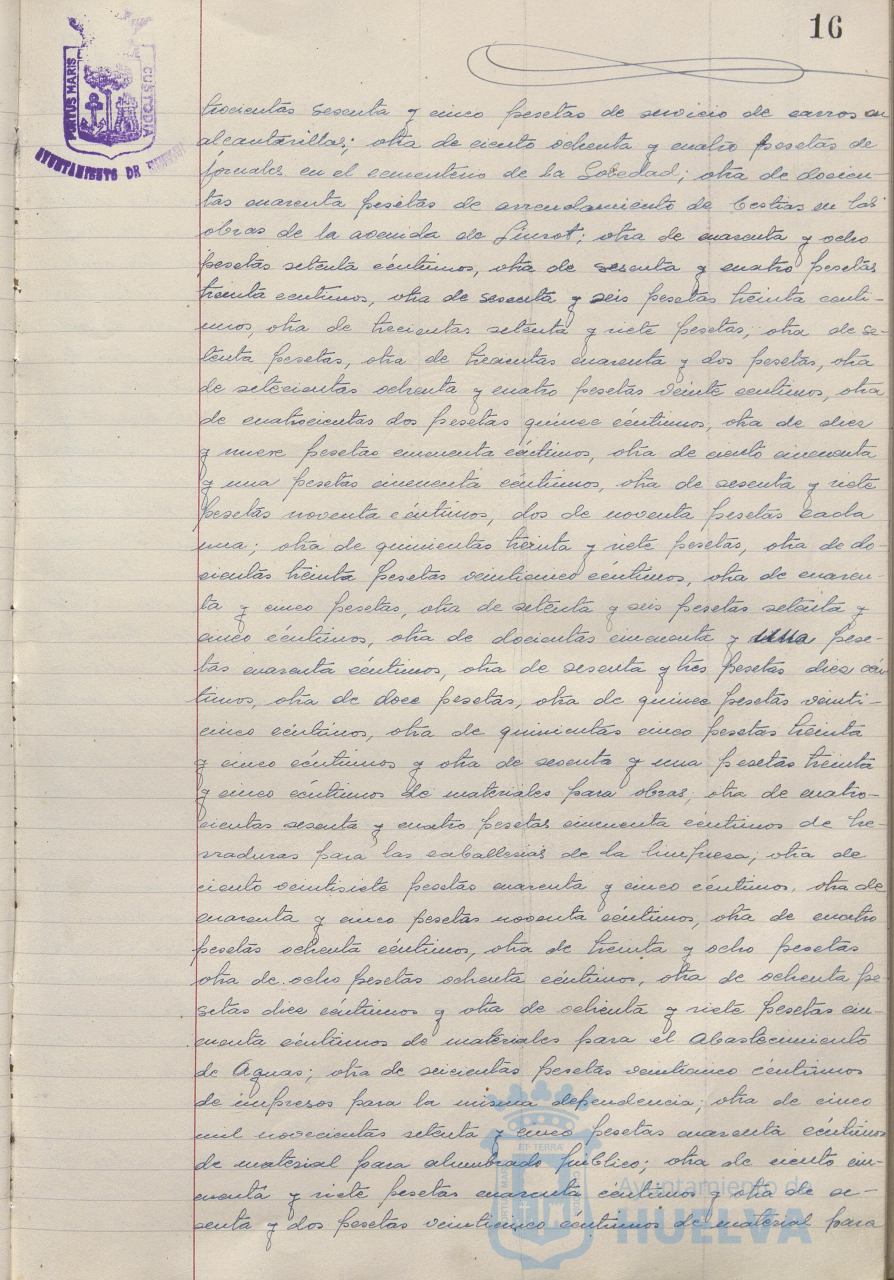 16
PORTUS MARIS
CUSTODIA
AYUNTAMIENTO DE
trocientas sesenta y cinco pesetas de servicio de carros en
alcantarillas; otra de ciento ochenta y cuatro pesetas de
jornales en el cementerio de la Soledad; otra de doscien-
tas cuarenta pesetas de arrendamiento de bestias en las
obras de la avenida de ; otra de cuarenta y ocho
pesetas setenta céntimos, otra de sesenta y cuatro pesetas
treinta centimos, otra de sesenta y seis pesetas treinta centi-
mos, otra de trecientas setenta y siete pesetas, otra de se-
tenta pesetas, otra de trecientas cuarenta y dos pesetas, otra
de setecientas ochenta y cuatro pesetas veinte centimos, otra
de cuatrocientas dos pesetas quince céntimos, otra de diez
y nueve pesetas cincuenta céntimos, otra de ciento cincuenta
y una pesetas cincuenta céntimos, otra de sesenta y siete
pesetas noventa céntimos, dos de noventa pesetas cada
una; otra de quinientas treinta y siete pesetas, otra de do-
cientas treinta pesetas veinticinco céntimos, otra de cuaren-
ta y cinco pesetas, otra de setenta y seis pesetas setenta y
cinco céntimos, otra de docientas cincuenta y una pese-
tas cuarenta céntimos, otra de sesenta y tres pesetas diez cén
timos, otra de doce pesetas, otra de quince pesetas veinti-
cinco céntimos, otra de quinientas cinco pesetas treinta
y cinco céntimos y otra de sesenta y una pesetas treinta
y cinco céntimos de materiales para obras; otra de cuatro-
cientas sesenta y cuatro pesetas cincuenta céntimos de he-
rraduras para las caballerias de la limpieza; otra de
ciento veintisiete pesetas cuarenta y cinco céntimos, otra de
cuarenta y cinco pesetas noventa céntimos, otra de cuatro
pesetas ochenta céntimos, otra de treinta y ocho pesetas
otra de ocho pesetas ochenta céntimos, otra de ochenta pe-
setas diez céntimos y otra de ochenta y siete pesetas cin-
cuenta céntimos de materiales para el Abastecimiento
de Aguas; otra de seicientas pesetas veinticinco céntimos
de impresos para la misma dependencia; otra de cinco
mil novecientas setenta y cinco pesetas cuarenta céntimos
de material para alumbrado público; otra de ciento cin-
cuenta y siete pesetas cuarenta céntimos y otra de se-
senta y dos pesetas veinticinco céntimos de material para
ET TERRÆ
Ayuntamiento de
HUELVA